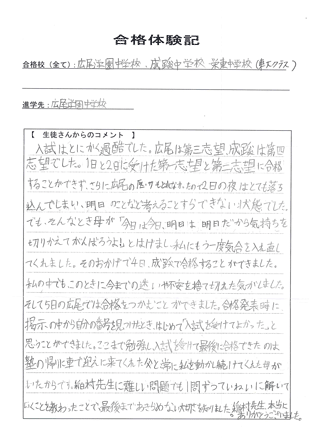 合格体験記
合格校(全て):広尾学園中学校、成蹊中学校 栄東中学校(東大クラス)
進学先:広尾学園中学校
【 生徒さんからのコメント 】
入試はとにかく過酷でした。広尾は第三志望、成蹊は第四
志望でした。1日と2日に受けた第一志望と第二志望に合格
することができず、さらに広尾の その2日の夜はとても落ち
込んでしまい、明日のことなど考えることすらできない状態でした。
でも、そんなとき母が「今日は今日、明日は明日だから気持ちを
切りかえてがんばろうよ」とはげまし、私にもう一度気合を入れ直し
てくれました。そのおかげで4日、成蹊で合格することができました。
私の中でもこのときに今までの迷いや不安を捨て切れた気がしました。
そして5日の広尾では合格をつかむことができました。合格発表時に
掲示の中から自分の番号を見つけたとき、はじめて「入試を受けてよかった。」と
思うことができました。ここまで勉強し入試を受けて最後に合格できたのは
塾の帰りに車で迎えに来てくれた父と常に私を励まし続けてくれた母が
いたからです。稲村先生に難しい問題でも1問ずつていねいに解いて
いくことを教わったことで最後まであきらめない大切さを知りました。稲村先生、本当に
ありがとうございました。